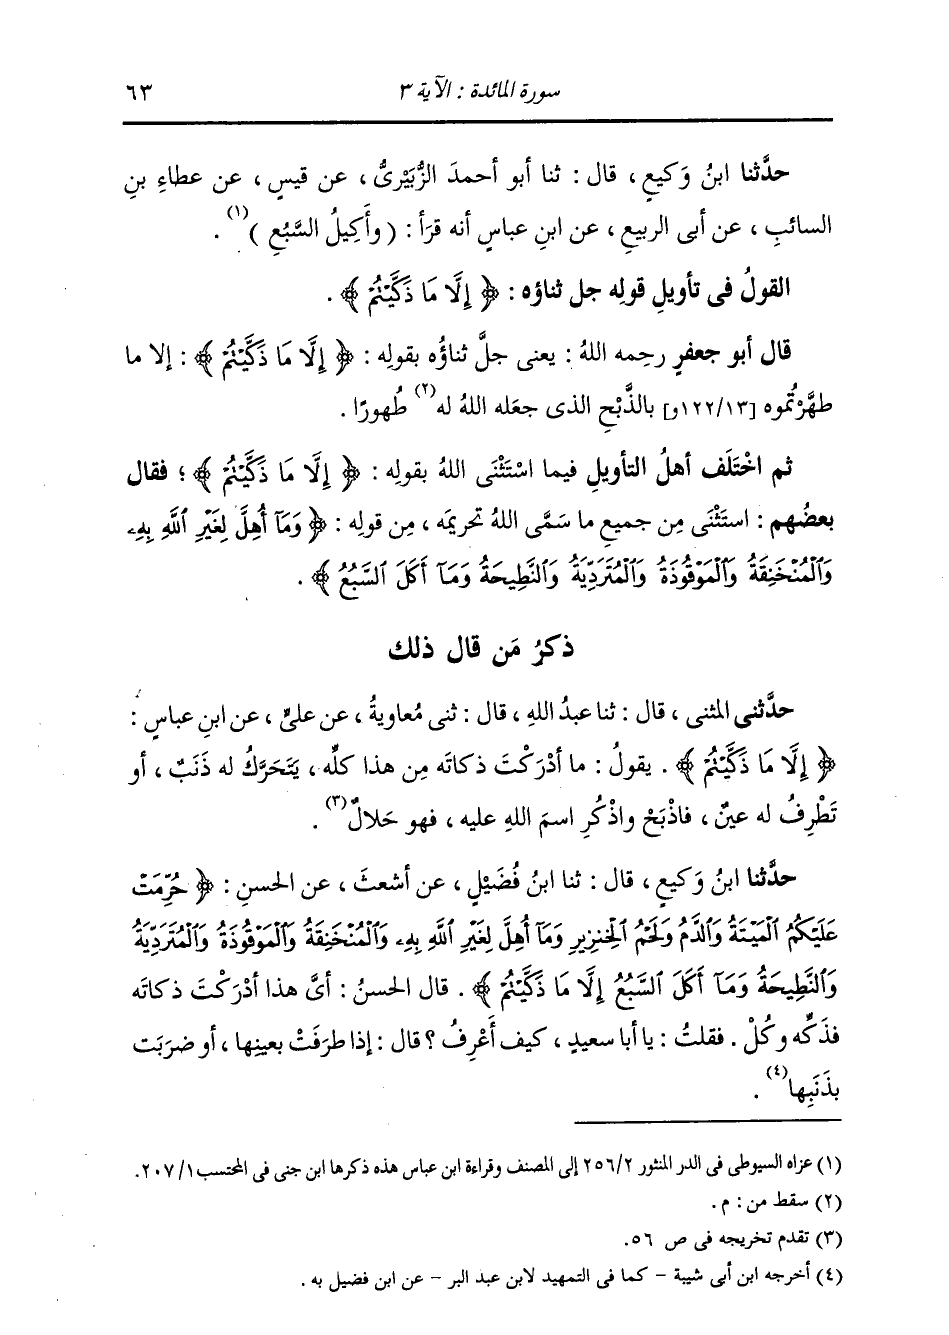 سورة المائدة : الآية ٣ ٦٣
حدَّثنا ابنُ وَكيعٍ ، قال : ثنا أبو أحمدَ الزُّبَيْرىُّ ، عن قيسٍ ، عن عطاءِ بنِ
السائبِ ، عن أبى الربيعِ ، عن ابنِ عباسٍ أنه قرَأ : ( وأَكِيلُ السَّبُعِ )(١) .
القولُ فى تأويلِ قولِه جل ثناؤه : ﴿ إِلَّا مَا ذَكَّيْتُمْ ﴾ .
قال أبو جعفرٍ رحِمه اللهُ : يعنى جلَّ ثناؤُه بقولِه : ﴿ إِلَّا مَا ذَكَّيْتُمْ ﴾ : إلا ما
طهَّرْتُموه [١٢٢/١٣و] بالذَّبْحِ الذى جعَله اللهُ له(٢) طُهورًا .
ثم اخْتَلَف أهلُ التأويلِ فيما اسْتَثْنَى اللهُ بقولِه : ﴿ إِلَّا مَا ذَكَّيْتُمْ ﴾ ؛ فقال
بعضُهم : استَثْنَى مِن جميعِ ما سَمَّى اللهُ تحريمَه ، مِن قولِه : ﴿ وَمَآ أُهِلَّ لِغَيْرِ ٱللَّهِ بِهِۦ
وَٱلْمُنْخَنِقَةُ وَٱلْمَوْقُوذَةُ وَٱلْمُتَرَدِّيَةُ وَٱلنَّطِيحَةُ وَمَآ أَكَلَ ٱلسَّبُعُ ﴾ .
ذكرُ مَن قال ذلك
حدَّثنى المثنى ، قال : ثنا عبدُ اللهِ ، قال : ثنى مُعاويةُ ، عن علىٍّ ، عن ابنِ عباسٍ :
﴿ إِلَّا مَا ذَكَّيْتُمْ ﴾ . يقولُ : ما أدْرَكْتَ ذكاتَه مِن هذا كلِّه ، يَتَحَرَّكُ له ذَنَبٌ ، أو
تَطْرِفُ له عينٌ ، فاذْبَحْ واذْكُرِ اسمَ اللهِ عليه ، فهو حَلالٌ(٣) .
حدَّثنا ابنُ وَكيعٍ ، قال : ثنا ابنُ فُضَيْلٍ ، عن أشعثَ ، عن الحسنِ : ﴿ حُرِّمَتْ
عَلَيْكُمُ ٱلْمَيْتَةُ وَٱلدَّمُ وَلَحْمُ ٱلْخِنزِيرِ وَمَآ أُهِلَّ لِغَيْرِ ٱللَّهِ بِهِۦ وَٱلْمُنْخَنِقَةُ وَٱلْمَوْقُوذَةُ وَٱلْمُتَرَدِّيَةُ
وَٱلنَّطِيحَةُ وَمَآ أَكَلَ ٱلسَّبُعُ إِلَّا مَا ذَكَّيْتُمْ ﴾ . قال الحسنُ : أىَّ هذا أدْرَكْتَ ذكاتَه
فذَكِّه وكُلْ . فقلتُ : يا أبا سعيدٍ ، كيف أَعْرِفُ ؟ قال : إذا طرَفَتْ بعينِها ، أو ضرَبَت
بذَنَبِها(٤) .
(١) عزاه السيوطى فى الدر المنثور ٢٥٦/٢ إلى المصنف وقراءة ابن عباس هذه ذكرها ابن جنى فى المحتسب ٢٠٧/١.
(٢) سقط من : م .
(٣) تقدم تخريجه فى ص ٥٦.
(٤) أخرجه ابن أبى شيبة - كما فى التمهيد لابن عبد البر - عن ابن فضيل به .